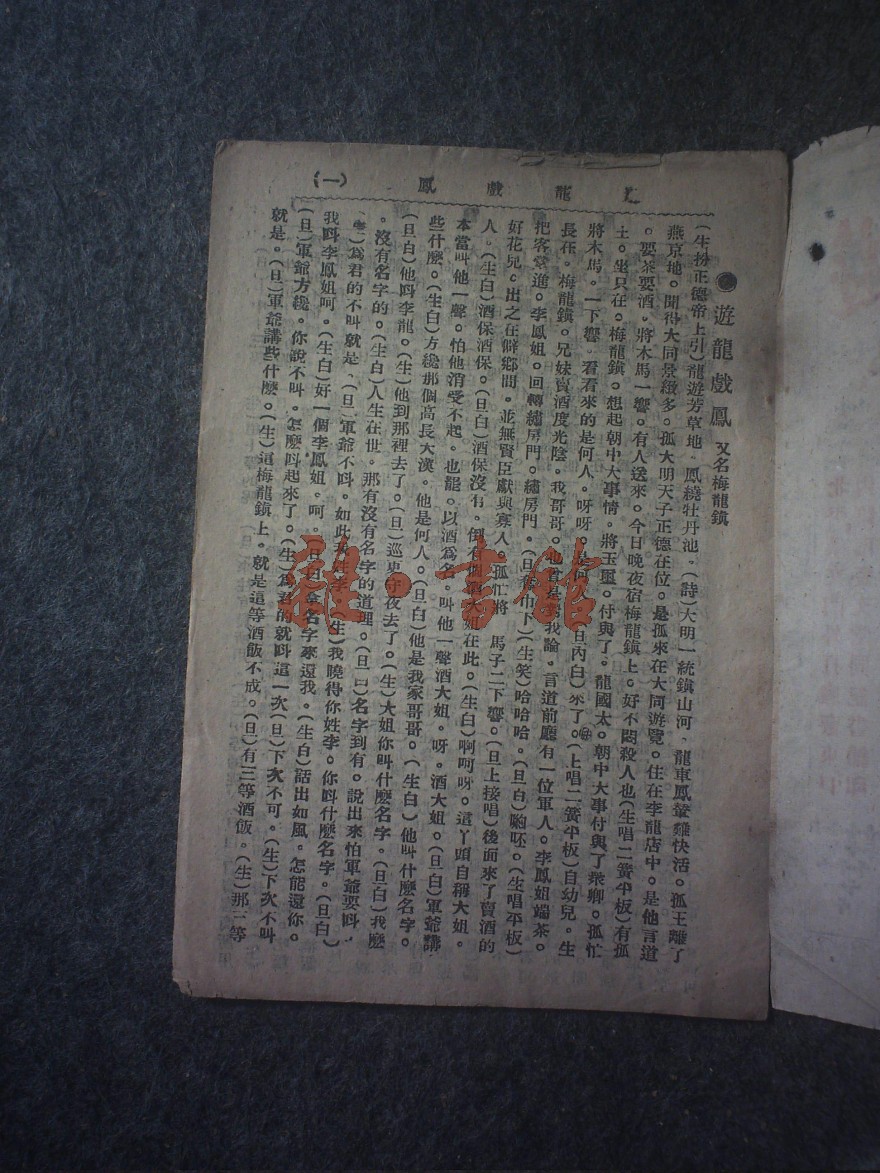 龍戲鳳 (一)
●遊龍戲鳳 又名梅龍鎮
(生扮正德帝上引)龍遊芳草地。鳳繞牡丹池。(詩)大明一統鎮山河。龍車鳳輦難快活。孤王離了
燕京地。聞得大同景緻多。孤大明天子正德在位。是孤來在大同遊覽。住在李龍店中。是他言道
。要茶要酒。將木馬一響。有人送來。今日晚夜宿梅龍鎮上。好不悶殺人也(生唱二簧平板)有孤
王。坐只在。梅龍鎮。想起朝中大事情。將玉璽。付與了。龍國太。朝中大事付與了衆卿。孤忙
將木馬。一下響。看看來的是何人。呀呀。是何人。(旦內白)來了。(上唱二簧平板)自幼兒。生
長在。梅龍鎮。兄妹賣酒度光陰。我哥哥。也曾是對我論。言道前廳有一位軍人。李鳳姐端茶。
把客堂進。李鳳姐。回轉繡房門。繡房門。(旦 下)(生笑)哈哈哈。(旦白)啲呸。(生唱平板)
好花兒。出之在僻鄉間。並無賢臣獻與寡人。孤忙將 馬子二下響。(旦上接唱)後面來了賣酒的
人。(生白)酒保酒保。(旦白)酒保沒有。倒有個酒大姐在此。(生白)啊呵呀。這丫頭自稱大姐。
本當叫他一聲。怕他消受不起。也罷。以酒爲名。叫他一聲酒大姐。呀。酒大姐。(旦白)軍爺講
些什麼。(生白)方纔那個高長大漢。他是何人。(旦白)他是我家哥哥。(生白)他叫什麼名字。
(旦白)他叫李龍。(生)他到那裡去了。(旦)巡更守夜去了。(生)大姐你叫什麼名字。(旦白)我麼
。沒有名字的。(生白)人生在世。那有沒有名字的道理。(旦白)名字到有。說出來怕軍爺要叫。
(生)爲君的不叫就是。(旦)軍爺不叫。如此我姓李。(生)我曉得你姓李。你叫什麼名字。(旦白)
我叫李鳳姐呵。(生白)好一個李鳳姐。呵。(旦白)拿名字來還我。(生白)話出如風。怎能還你。
(旦)軍爺方纔。你說不叫。怎麼叫起來了。(生)爲君的就叫這一次(旦)下次不可。(生)下次不叫
就是。(旦)軍爺講些什麼。(生)這梅龍鎮上。就是這等酒飯不成。(旦)有三等酒飯。(生)那三等
雜·書館